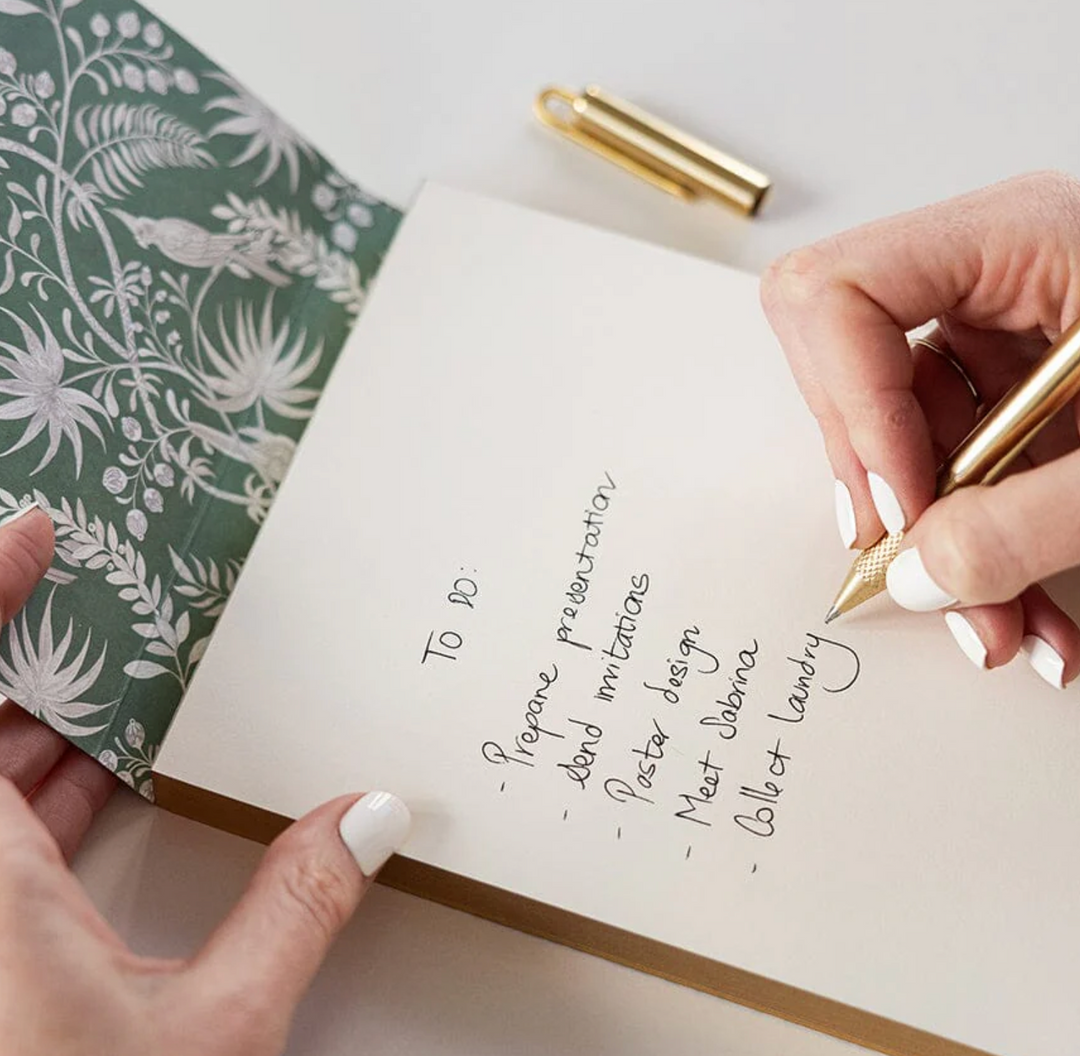 To DO:
- Prepare presentation
- Send invitations
- Poster design
- Meet Sabrina
- Collect laundry